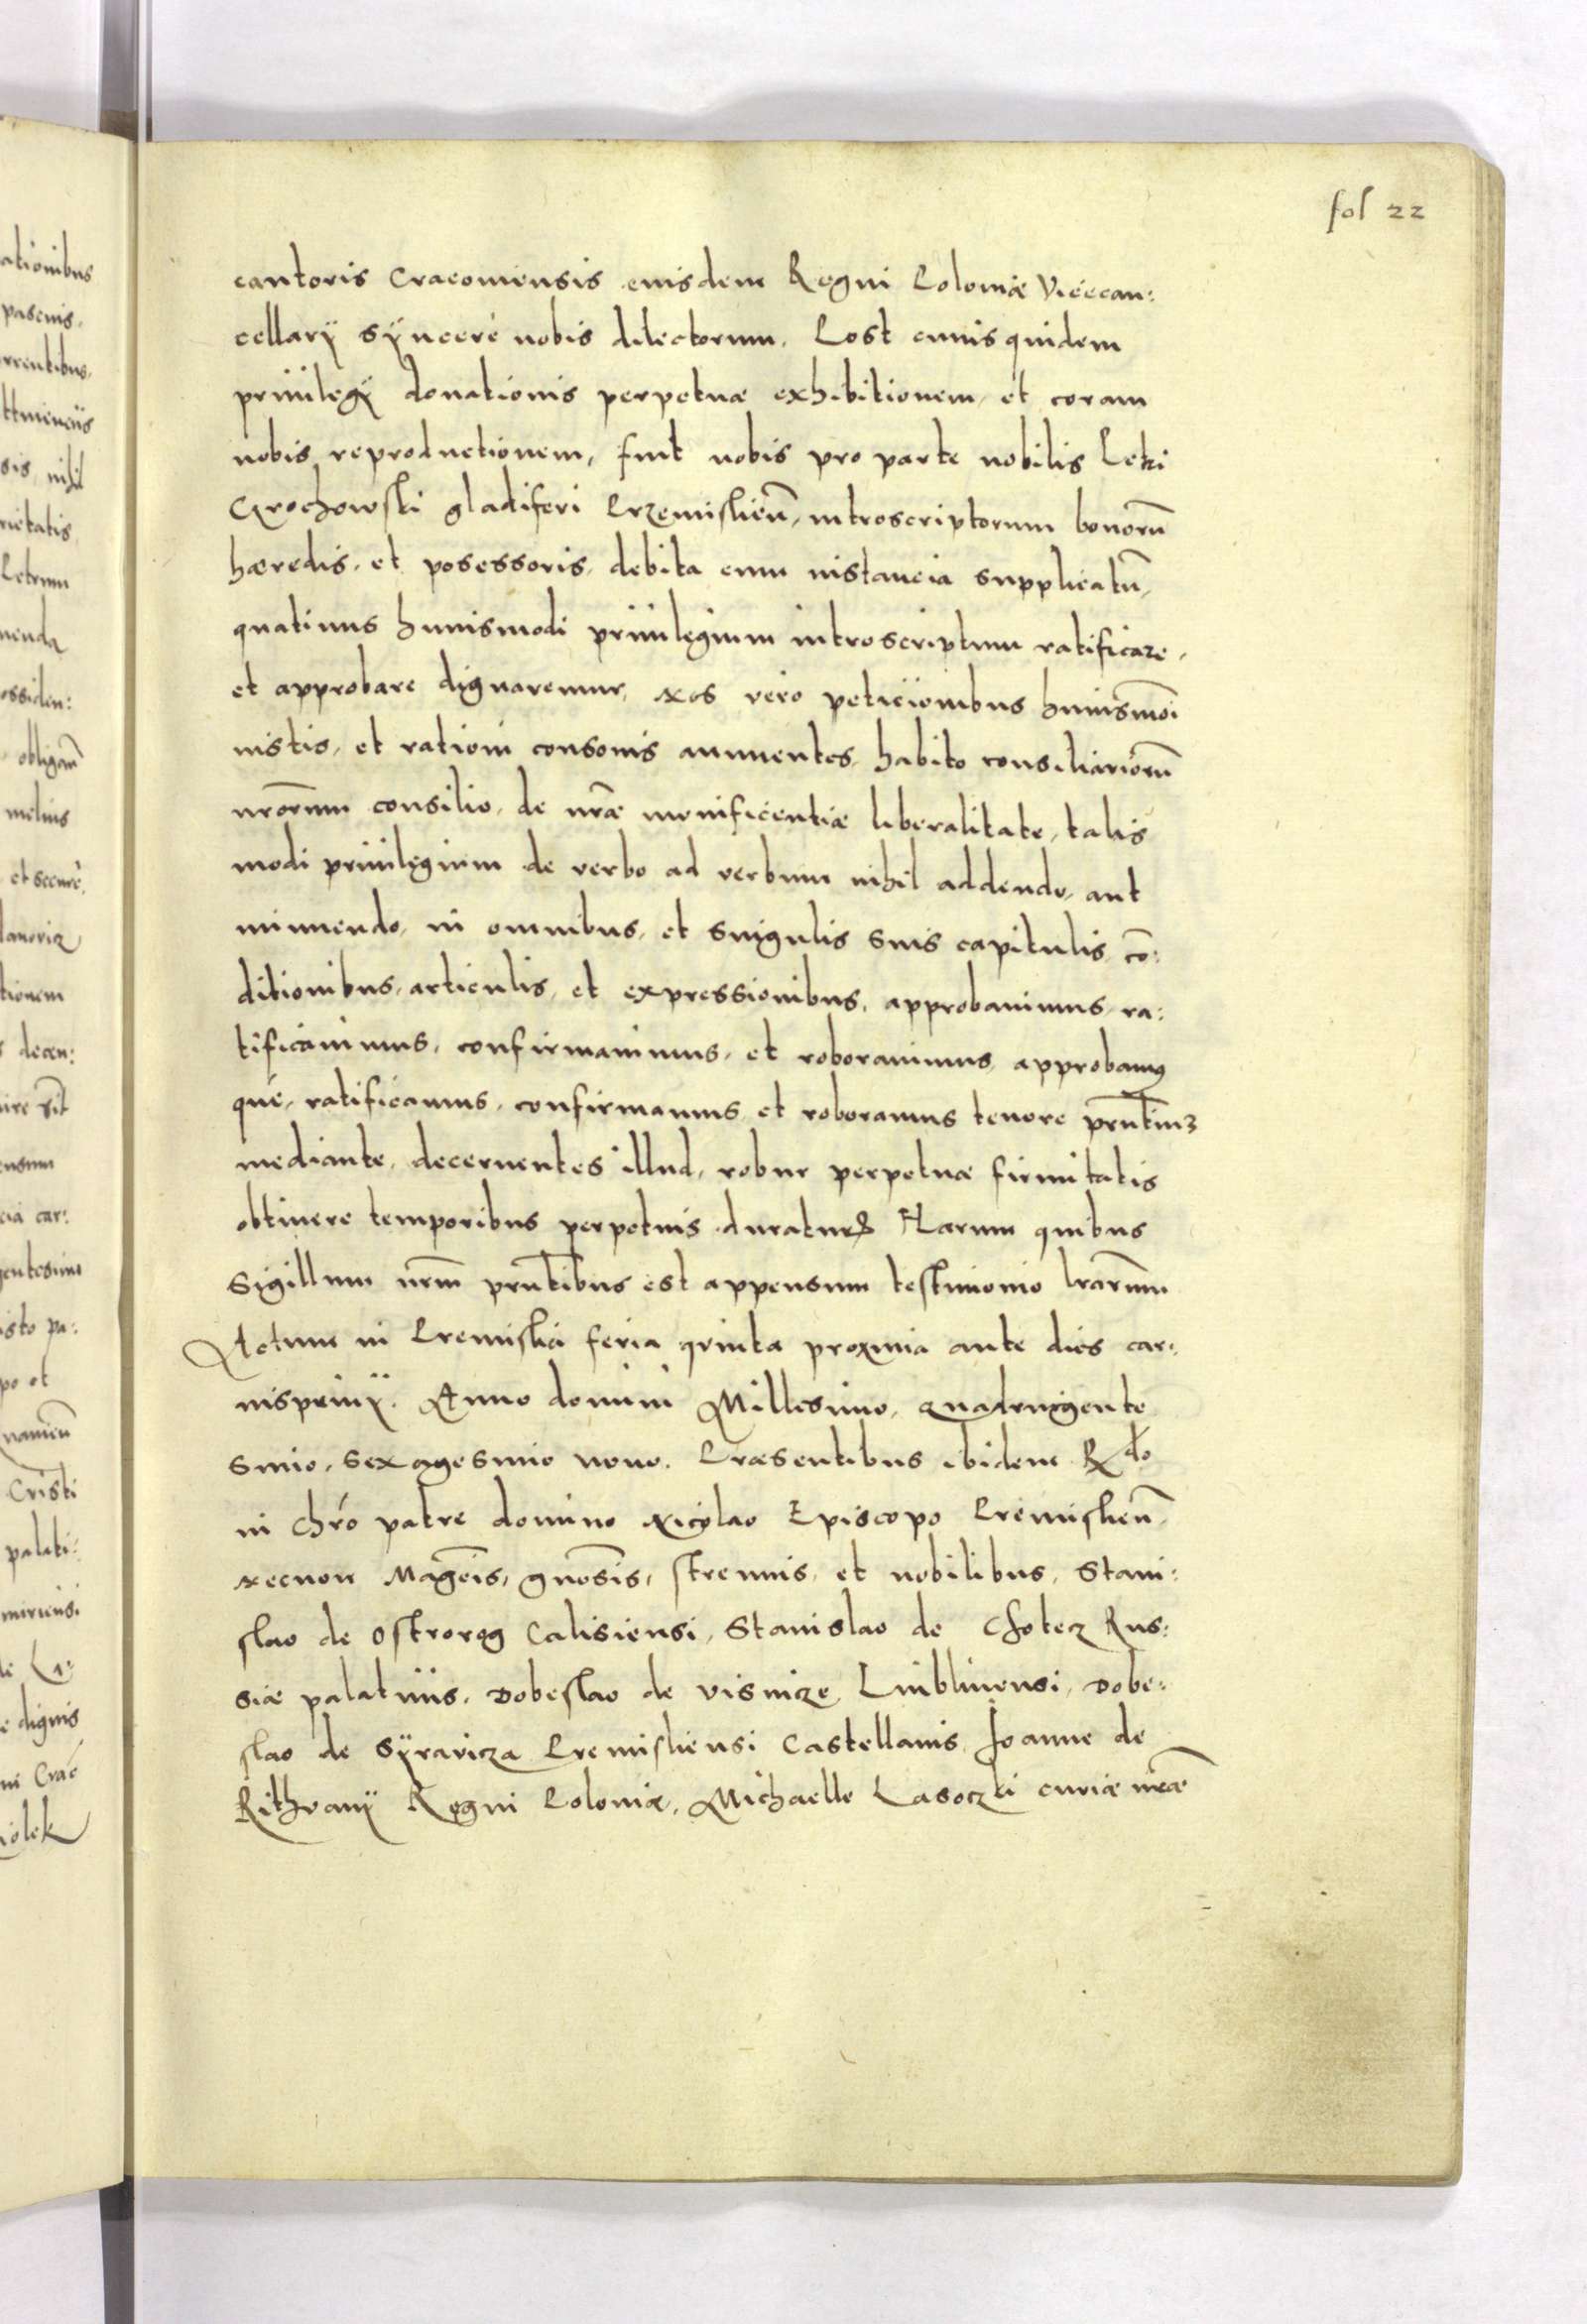 fol 22
cantoris Cracouiensis eiusdem Regni Poloniæ Vicecan:
cellarÿ sÿncerè nobis dilectorum. Post cuius quidem
priuilegÿ donationis perpetuæ exhibitionem, et coram
nobis reproductionem, fuit nobis pro parte nobilis Petri
Grochowski gladiferi Przemislieñ, introscriptorum bonorũ
hæredis, et posessoris, debita cum instancia supplicatũ,
quatinus huiusmodi priuilegium introscriptum ratificare,
et approbare dignaremur, Nos vero peticionibus huiusmõi
iustis, et rationi consonis annuentes, habito consiliariorũ
nrõrum consilio, de nræ munificentiæ liberalitate, talis
modi priuilegium de verbo ad verbum nihil addendo, aut
minuendo, in omnibus, et singulis suis capitulis, cõ:
ditionibus, articulis, et expressionibus, approbauimus, ra:
tificauimus, confirmauimus, et roborauimus, approbamus
que, ratificamus, confirmamus, et roboramus tenore prñtium
mediante, decernentes illud, robur perpetuæ firmitatis
obtinere temporibus perpetuis duraturũ Harum quibus
Sigillum nrm̃ prñtibus est appensum testimonio lrãrum
Actum in Premislia feria quinta proxima ante dies car:
nispriuÿ. Anno domini Millesimo, quadringente
simo, sexagesimo nono. Præsentibus ibidem Rdo
in chró patre domino Nicolao Episcopo Premislieñ,
Necnon Magcis, gnosis, strenuis, et nobilibus, Stani:
slao de Ostrorog Calisiensi, Stanislao de Chotecz Rus:
siæ palatinis, Dobeslao de Visnicze Lublinensi, Dobe:
slao de Sÿrawicza Premisliensi Castellanis, Joanne de
Rithwanÿ Regni Poloniæ, Michaelle Lasoczki curiæ nræ